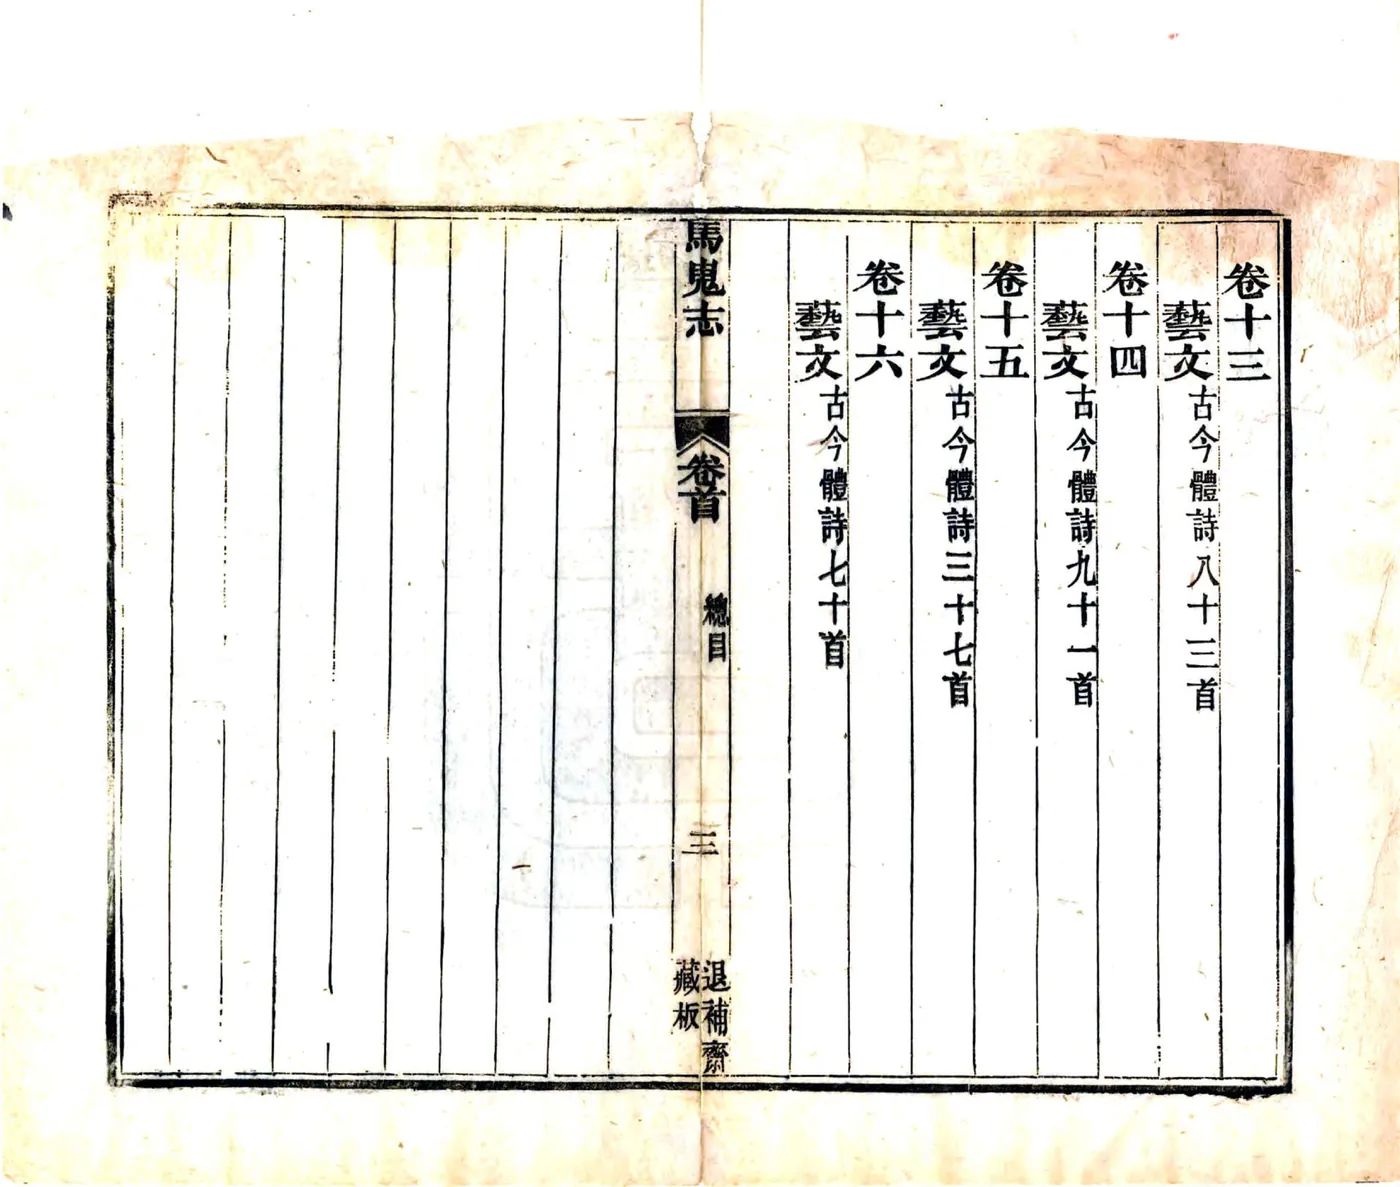 卷十三
藝文古今體詩八十三首
卷十四
藝文古今體詩九十一首
卷十五
藝文古今體詩三十七首
卷十六
藝文古今體詩七十首
馬嵬志
卷首
總目
三
退補齋
藏板